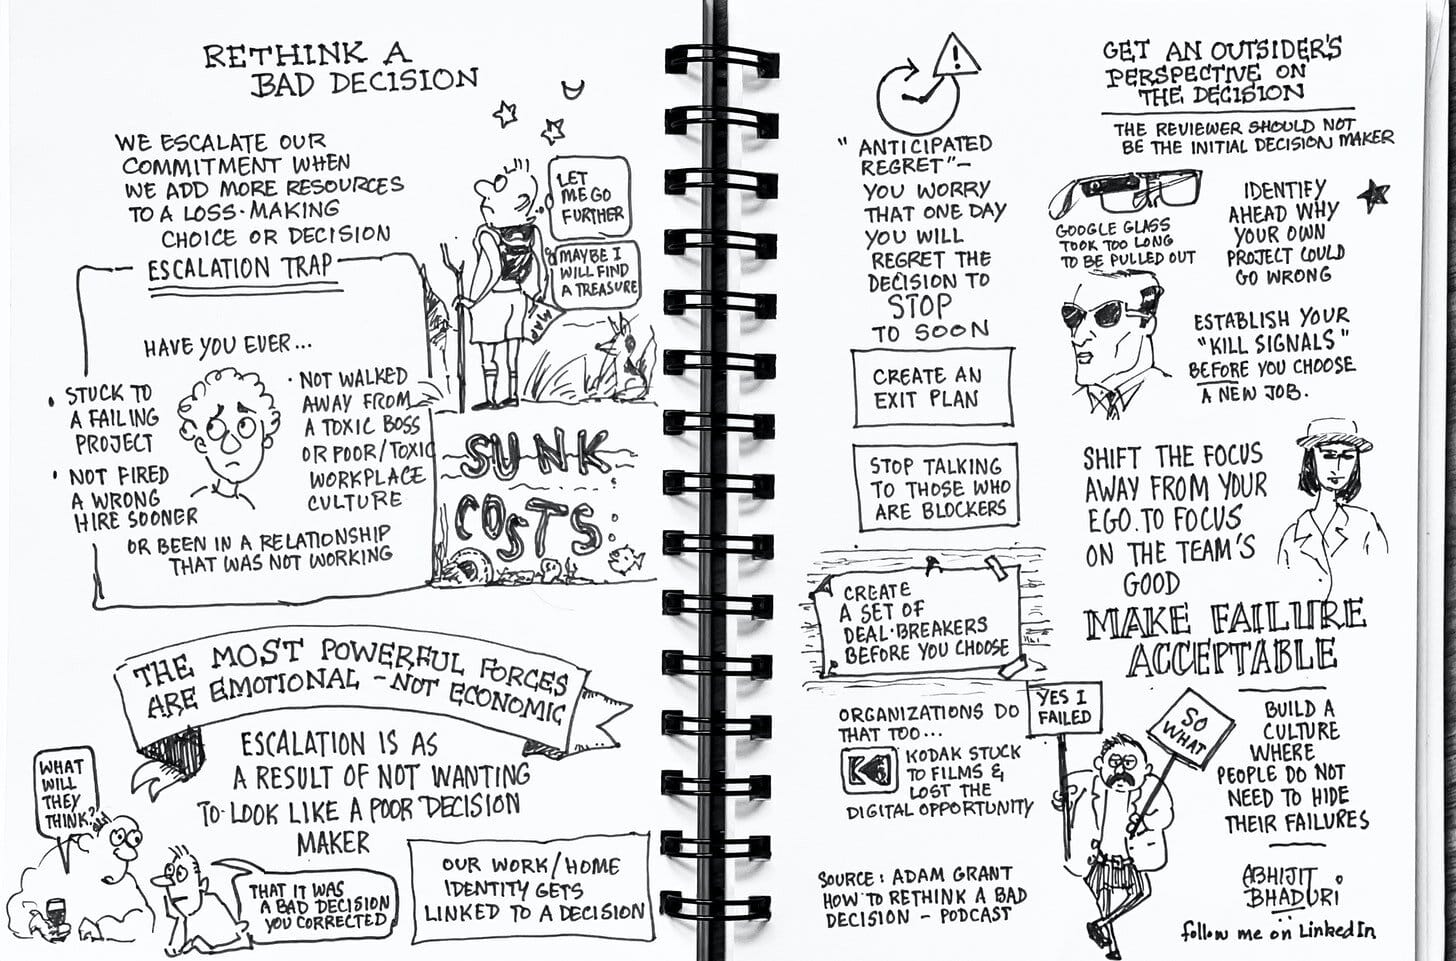 RETHINK A
BAD DECISION
WE ESCALATE OUR
COMMITMENT WHEN
WE ADD MORE RESOURCES
TO A LOSS-MAKING
CHOICE OR DECISION
LET
ME GO
FURTHER
MAYBE I
WILL FIND
A TREASURE
MAP
ESCALATION TRAP
HAVE YOU EVER...
• STUCK TO
A FAILING
PROJECT
• NOT FIRED
A WRONG
HIRE SOONER
• NOT WALKED
AWAY FROM
A TOXIC BOSS
OR POOR/TOXIC
WORKPLACE
CULTURE
OR BEEN IN A RELATIONSHIP
THAT WAS NOT WORKING
SUNK
COSTS
THE MOST POWERFUL FORCES
ARE EMOTIONAL - NOT ECONOMIC
ESCALATION IS AS
A RESULT OF NOT WANTING
TO LOOK LIKE A POOR DECISION
MAKER
WHAT
WILL
THEY
THINK?
THAT IT WAS
A BAD DECISION
YOU CORRECTED
OUR WORK/HOME
IDENTITY GETS
LINKED TO A DECISION
"ANTICIPATED
REGRET"-
YOU WORRY
THAT ONE DAY
YOU WILL
REGRET THE
DECISION TO
STOP
TO SOON
CREATE AN
EXIT PLAN
STOP TALKING
TO THOSE WHO
ARE BLOCKERS
CREATE
A SET OF
DEAL-BREAKERS
BEFORE YOU CHOOSE
ORGANIZATIONS DO
THAT TOO...
K
KODAK STUCK
TO FILMS &
LOST THE
DIGITAL OPPORTUNITY
SOURCE: ADAM GRANT
HOW TO RETHINK A BAD
DECISION - PODCAST
GET AN OUTSIDER'S
PERSPECTIVE ON
THE DECISION
THE REVIEWER SHOULD NOT
BE THE INITIAL DECISION MAKER
GOOGLE GLASS
TOOK TOO LONG
TO BE PULLED OUT
IDENTIFY
AHEAD WHY
YOUR OWN
PROJECT COULD
GO WRONG
ESTABLISH YOUR
"KILL SIGNALS"
BEFORE YOU CHOOSE
A NEW JOB.
SHIFT THE FOCUS
AWAY FROM YOUR
EGO. TO FOCUS
ON THE TEAM'S
GOOD
MAKE FAILURE
ACCEPTABLE
YES I
FAILED
SO
WHAT
BUILD A
CULTURE
WHERE
PEOPLE DO NOT
NEED TO HIDE
THEIR FAILURES
ABHIJIT
BHADURI
follow me on LinkedIn